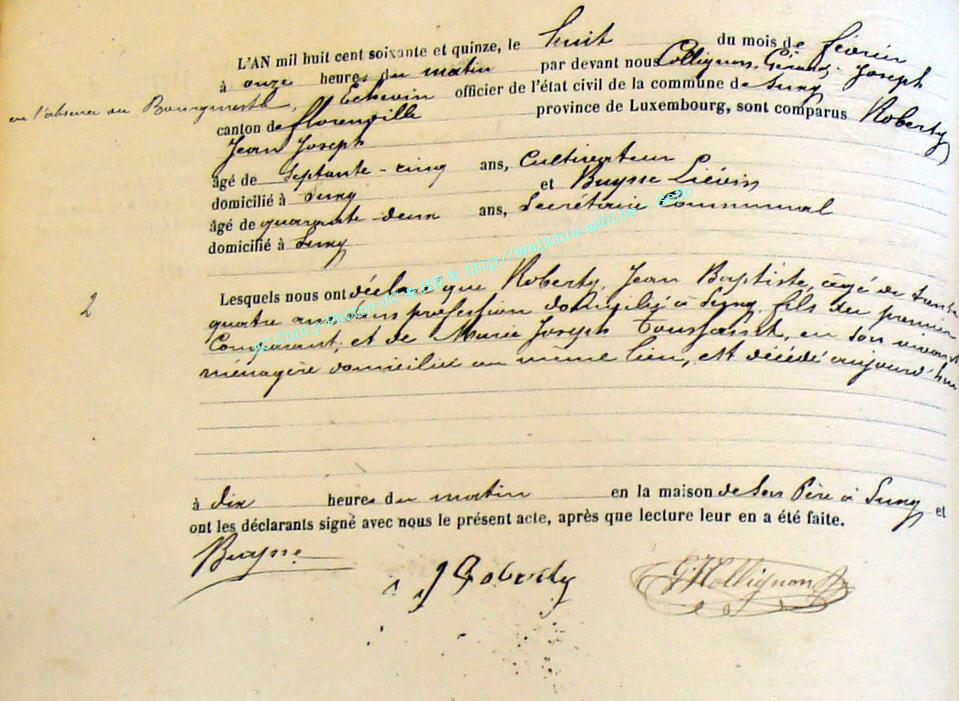 L'AN mil huit cent soixante et quinze, le huit du mois de février
à onze heures du matin par devant nous Collignon, Gérard-Joseph
en l'absence du Bourgmestre, Echevin officier de l'état civil de la commune de Suxy
canton de florenville province de Luxembourg, sont comparus Roberty
Jean Joseph
âgé de septante-cinq ans, Cultivateur
domicilié à Suxy et Buysse Liévin
âgé de quarante deux ans, Secrétaire Communal
domicilié à Suxy
2
Lesquels nous ont déclaré que Roberty, Jean Baptiste, âgé de trente
quatre ans sans profession domicilié à Suxy, fils du premier
Comparant, et de Marie Joseph Toussaint, en son vivant
ménagère domiciliée au même lieu, est décédé aujourd'hui
à dix heures du matin en la maison de son Père à Suxy et
ont les déclarants signé avec nous le présent acte, après que lecture leur en a été faite.
Buysse
J Roberty
G J Collignon